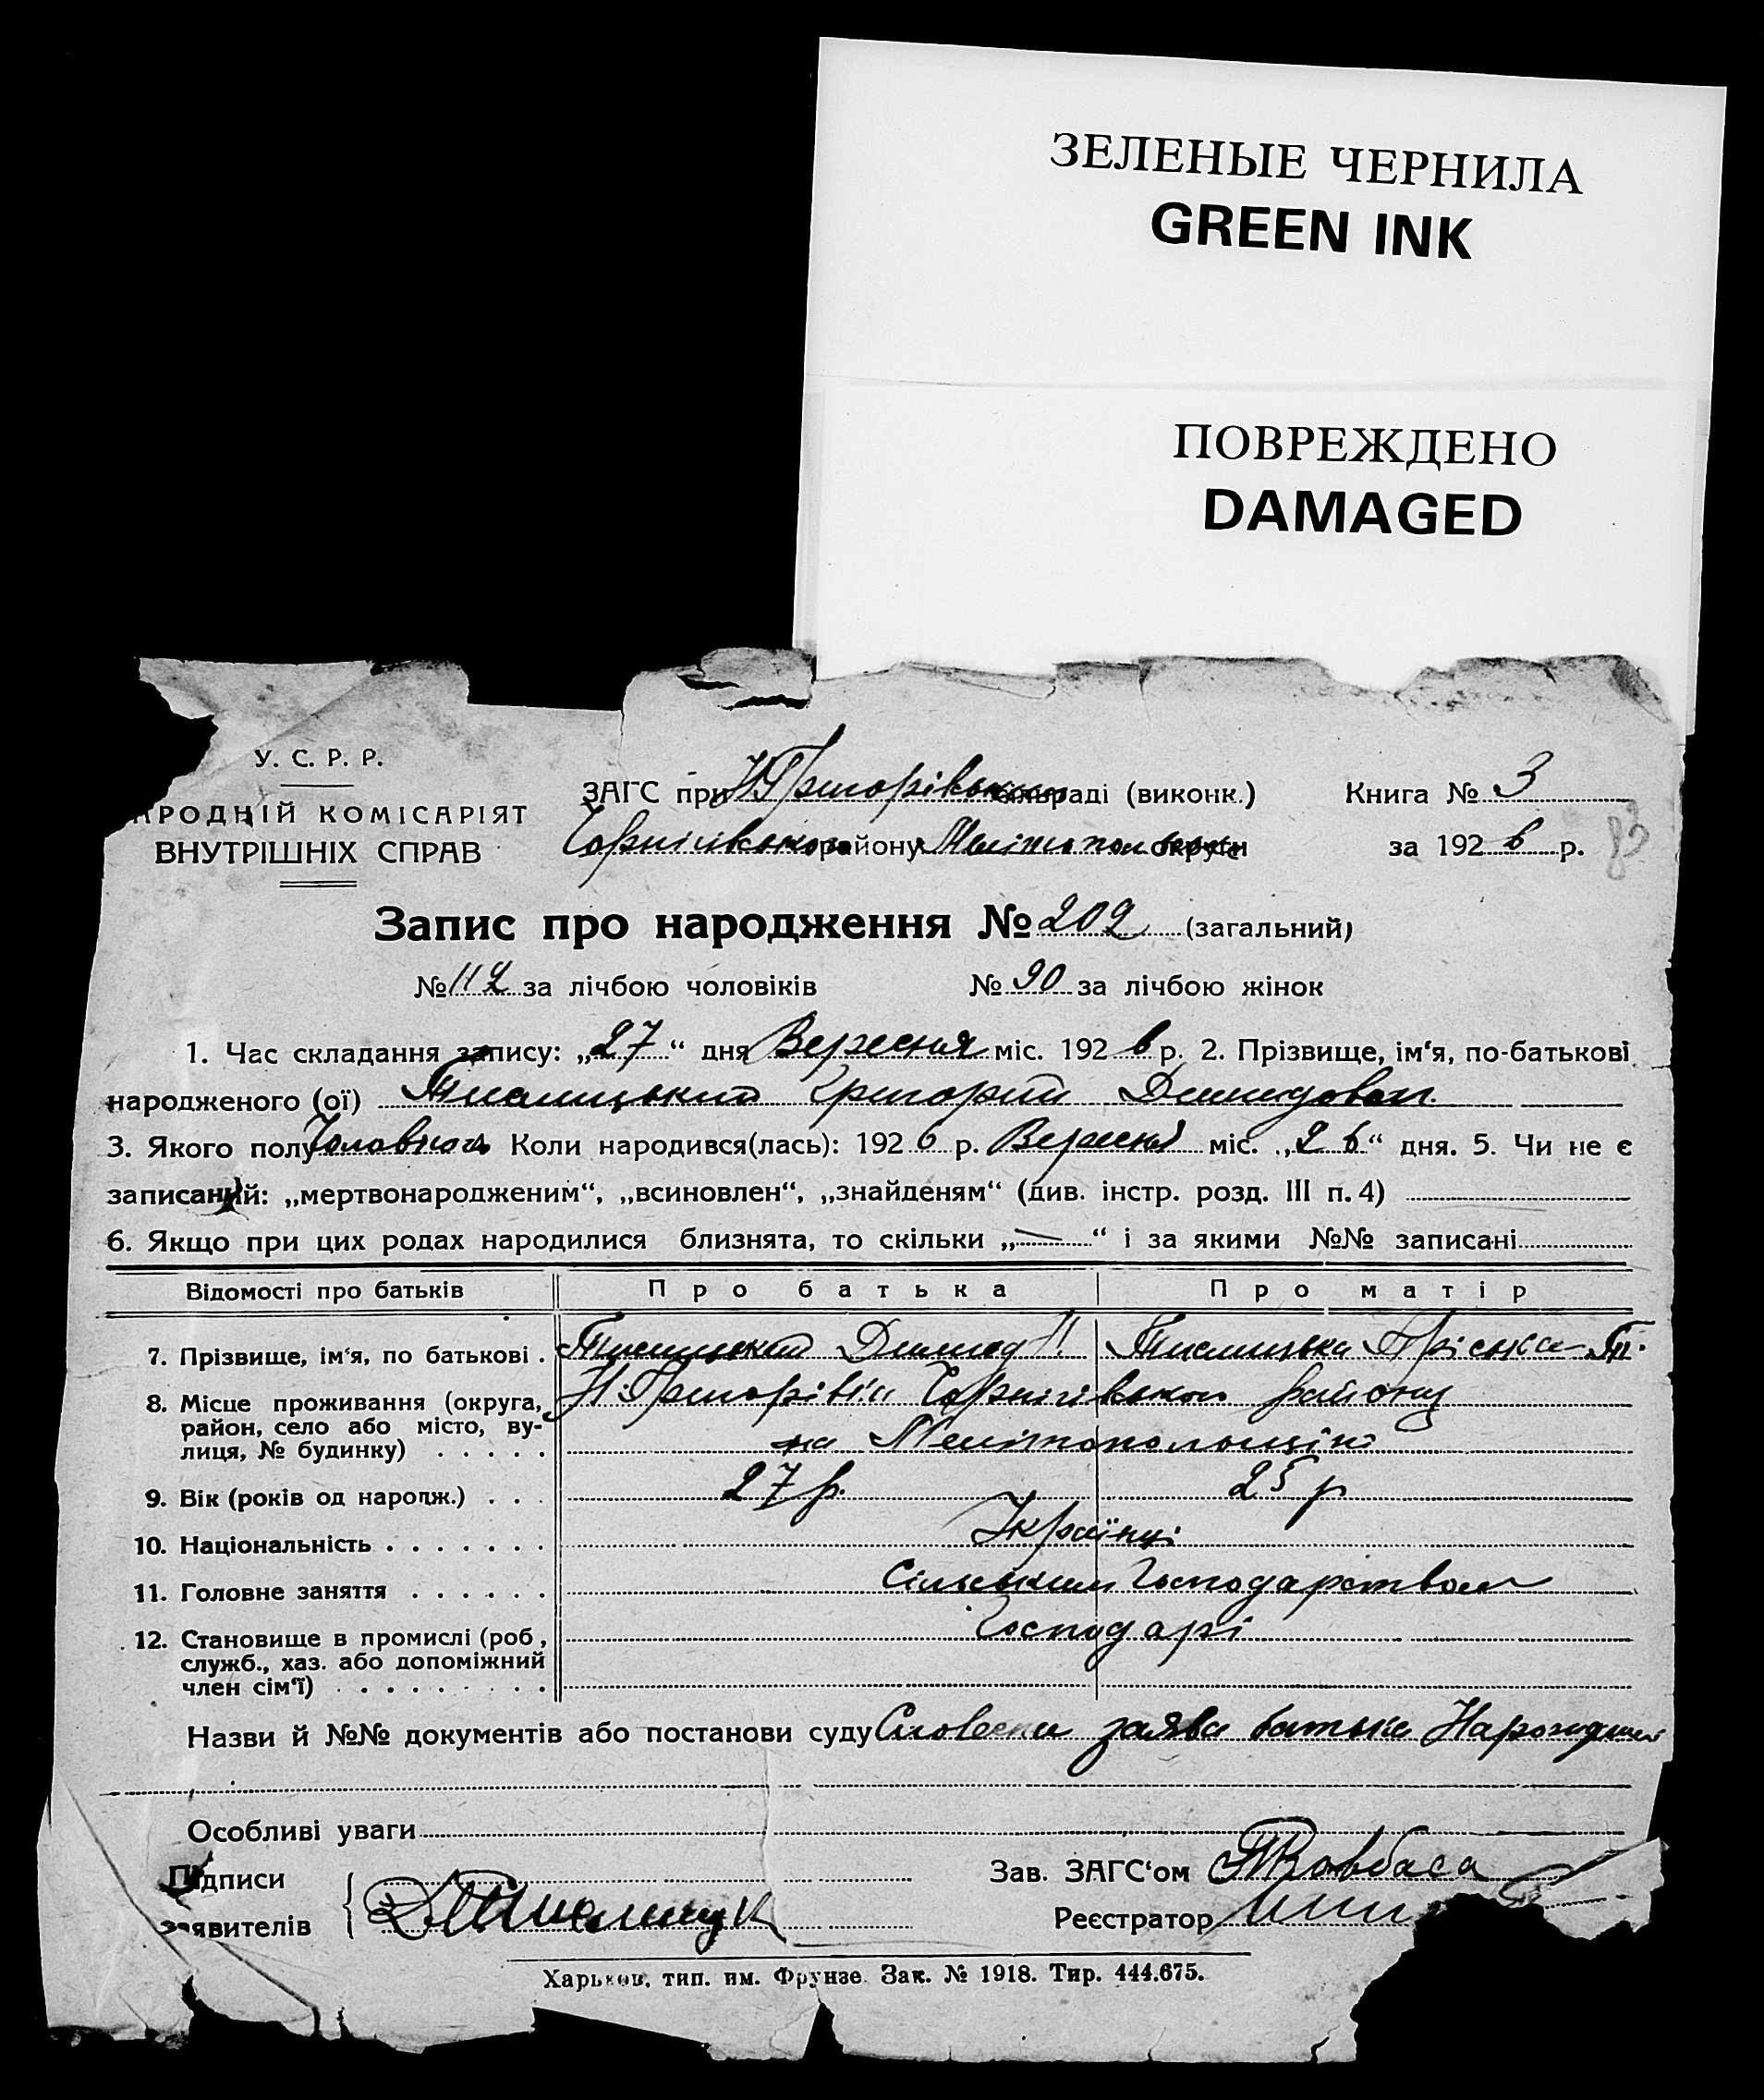 ЗЕЛЕНЫЕ ЧЕРНИЛА
GREEN INK
ПОВРЕЖДЕНО
DAMAGED
У. С. Р. Р.
АРОДНІЙ КОМІСАРІЯТ
ВНУТРІШНІХ СПРАВ
ЗАГС при Н Григорівськ раді (виконк.)
Чорнігівського району Мелітопол округи
Книга № 3
за 192 6 р.
83
Запис про народження № 202 (загальний)
№ 112 за лічбою чоловіків № 90 за лічбою жінок
1. Час складання запису: „27“ дня Вересня міс. 192 6 р. 2. Прізвище, ім‘я, по-батькові
народженого (ої) Григорий
3. Якого полу Коли народився(лась): 192 6 р. Вересня міс. „26“ дня. 5. Чи не є
записаний: „мертвонародженим“, „всиновлен“, „знайденям“ (див. інстр. розд. III п. 4)
6. Якщо при цих родах народилися близнята, то скільки „—“ і за якими №№ записані
Відомості про батьків Про батька Про матір
7. Прізвище, ім‘я, по батькові . Пріська
8. Місце проживання (округа, район, село або місто, вулиця, № будинку) . . . . .
Н Григорівці Чорнігівського району
на Мелітопольщині
9. Вік (років од народж.) . . . 27 р. 25 р
10. Національність . . . . . . . Українці
11. Головне заняття . . . . . . Сільським Господарством
12. Становище в промислі (роб, Господарі
служб., хаз. або допоміжний
член сім‘ї) . . . . . . . . .
Назви й №№ документів або постанови суду Словесна заява батька
Особливі уваги
Підписи
заявителів
Зав. ЗАГС‘ом Ковбаса
Реєстратор
Харьков, тип. им. Фрунзе. Зак. № 1918. Тир. 444.675.